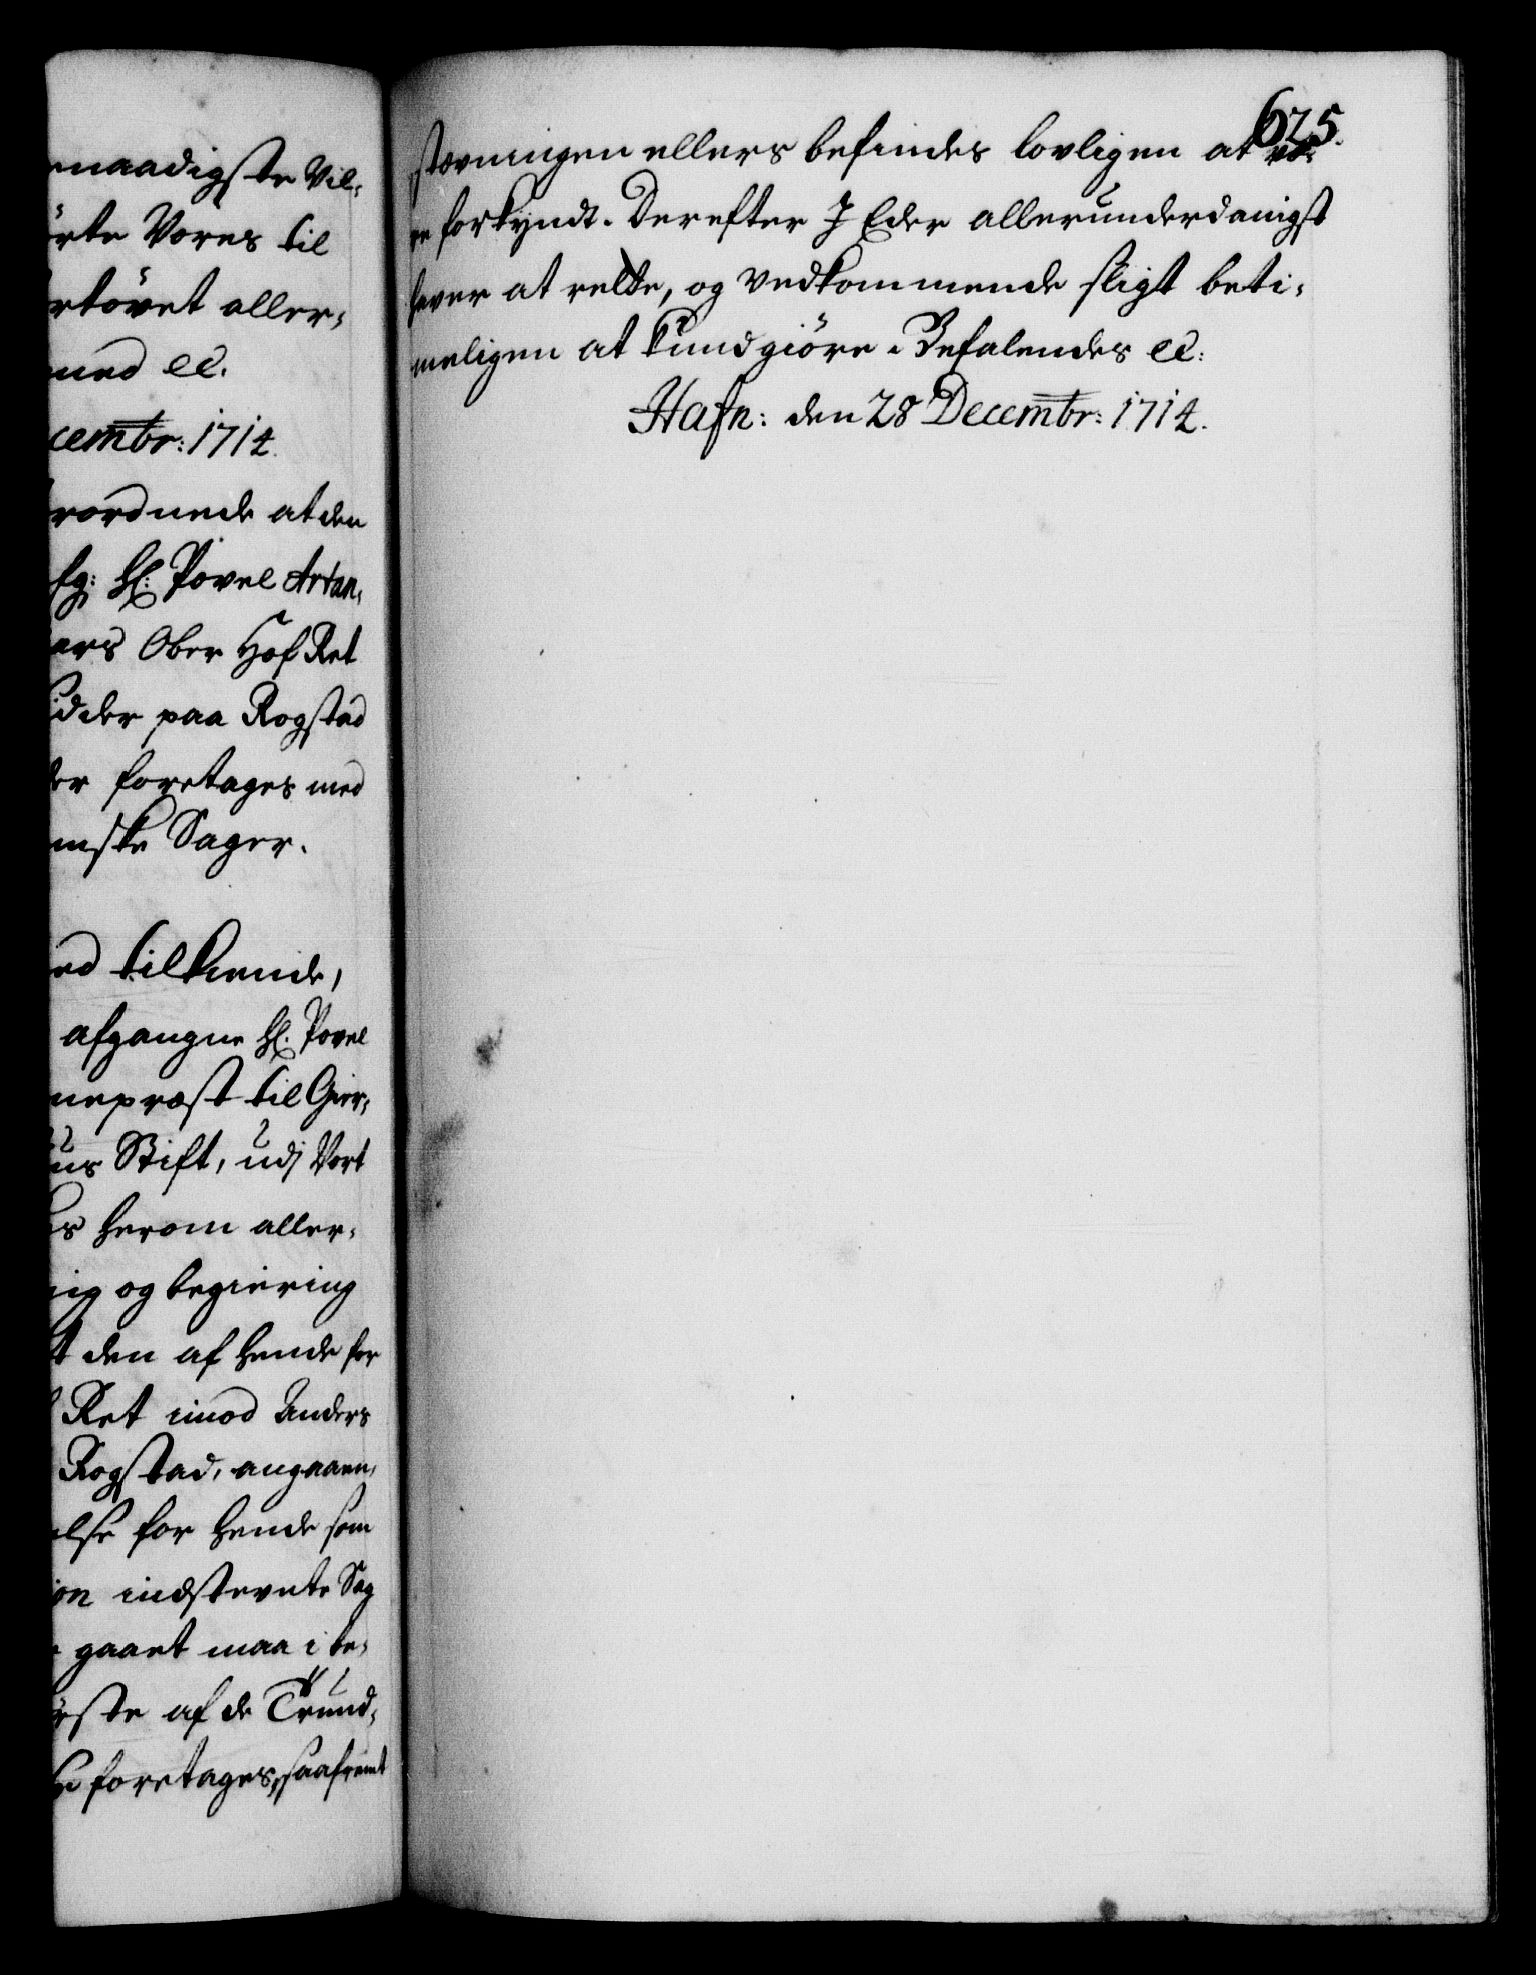 naadigste Vil-
rte Vores til
rtövet aller-
med etc.
cembr: 1714.
rordnede at den
sg: Hl: Povel Artan-
ars Ober Hof Ret
idder paa Rogstad
der foretages med
mske Sager.
ed tilkiende,
afgangne Hl. Povel
nepræst til Gier-
us Stift, udj Vort
es herom aller-
ig og begiering
t den af hende for
Ret imod Anders
Rogstad, angaaen-
else for hende som
on indstevnte Sag
gaaet maa i be-
rste af de Trund-
foretages, saafremt
625.
stævningen ellers befindes lovligen at væ-
re forkyndt. Derefter I Eder allerunderdanigst
haver at rette, og vedkommende sligt beti-
meligen at kundgiöre. Befalendes etc:
Hafn: den 28 Decembr: 1714.